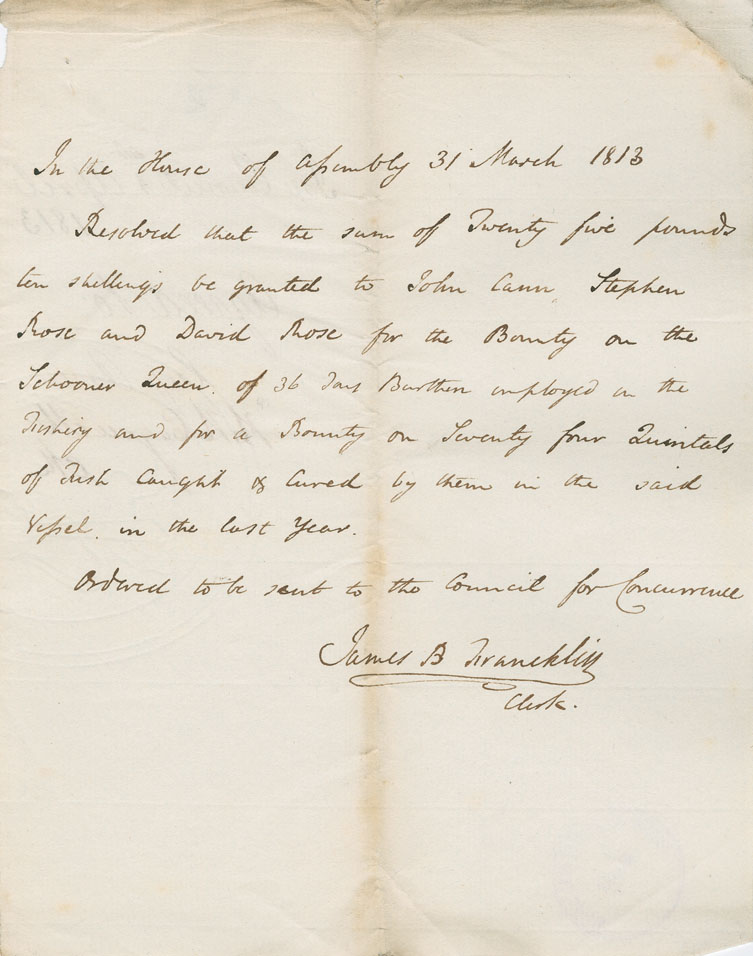 In the House of Assembly 31 March 1813
Resolved that the sum of Twenty five pounds
ten shellings be granted to John Cann, Stephen
Rose and David Rose for the Bounty on the
Schooner Queen of 36 Tons Burthen employed in the
Fishery and for a Bounty on Seventy four Quintals
of Fish Caught & Cured by them in the said
Vessel in the last Year.
Ordered to be sent to the Council for Concurrence
James B Francklin
Clerk.